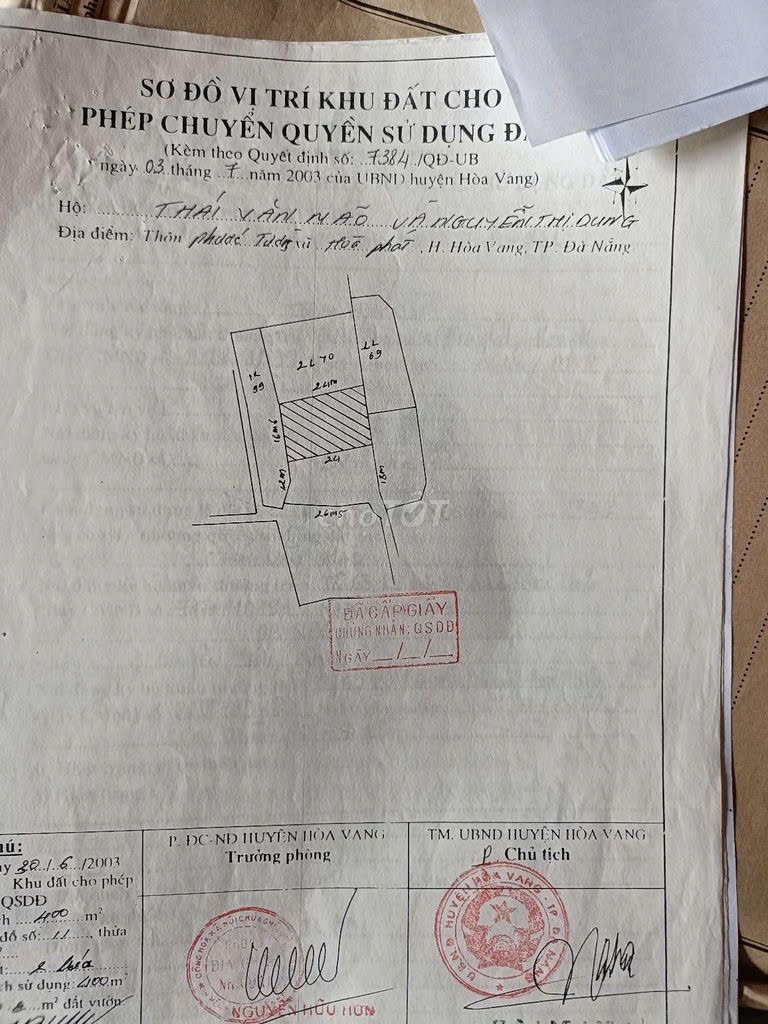 SƠ ĐỒ VỊ TRÍ KHU ĐẤT CHO
PHÉP CHUYỂN QUYỀN SỬ DỤNG
(Kèm theo Quyết định số: 7384/QĐ-UB
ngày 03 tháng 7 năm 2003 của UBND huyện Hòa Vang)
Hộ: THÁI VĂN NÃO VÀ NGUYỄN THỊ DUNG
Địa điểm: Thôn Phước Tường xã Hoà Phát, H. Hòa Vang, TP. Đà Nẵng
2L70
2L
69
24m
1L
99
16m6
24
12m
18m
26m5
CHOTỐT
ĐÃ CẤP GIẤY
CHỨNG NHẬN: QSDĐ
NGÀY _/_/_
P. ĐC-NĐ HUYỆN HÒA VANG
Trưởng phòng
TM. UBND HUYỆN HÒA VANG
P. Chủ tịch
20/6/2003
Khu đất cho phép
QSDĐ
400 m²
đồ số: 11, thửa
2 lúa
sử dụng: 400m²
m² đất vườn
U.B.N.D HUYỆN HÒA VANG - T.P ĐÀ NẴNG
NGUYỄN HỮU HÙN